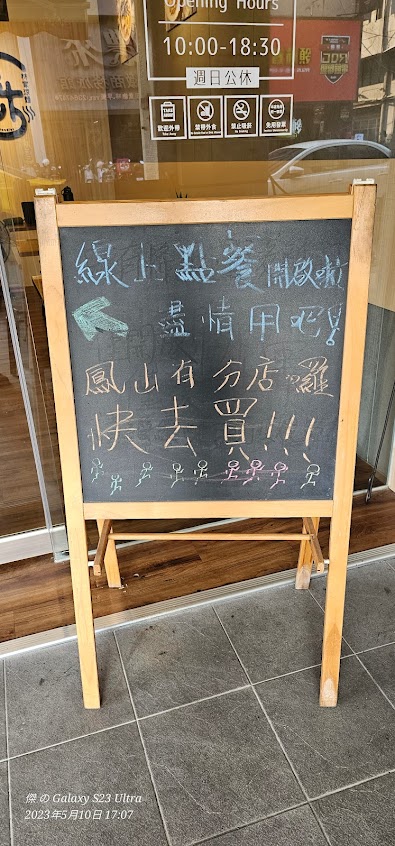 Opening Hours
10:00-18:30
週日公休
歡迎外帶 禁帶外食 禁止吸菸 免用發票
線上點餐開啟啦
盡情用吧!
鳳山有分店囉
快去買!!!
傑 の Galaxy S23 Ultra
2023年5月10日 17:07